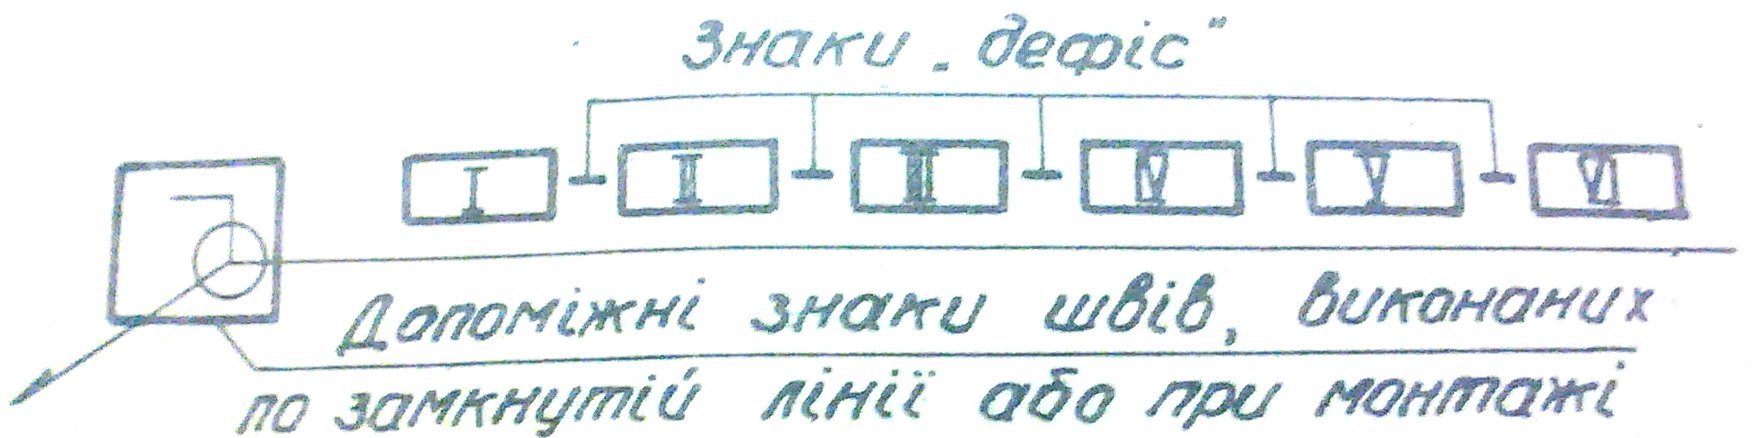 Знаки „дефіс"
I II III IV V VI
Допоміжні знаки швів, виконаних
по замкнутій лінії або при монтажі